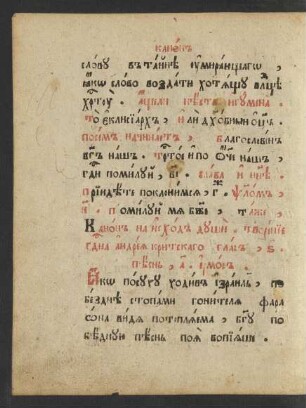 канѡ́нъ
сло́ву въ та́инѣ оу҆мира́ющагѡ
ꙗ҆́кѡ сло́во возда́ти хотѧ́щу влⷣцѣ
хрⷭ҇ту́.
и҆лѝ дх҃о́вный ѻ҆ц҃ъ.
по се́мъ начина́етъ. благослове́нъ
бг҃ъ на́шъ. трⷭ҇то́е и҆ по ѻ҆́ч҃е на́шъ,
гдⷭ҇и поми́луй, в҃і. сла́ва и҆ нн҃ѣ.
прїиди́те поклони́мсѧ, г҃. ѱало́мъ,
н҃. поми́луй мѧ̀ бж҃е,
Кано́нъ на и҆схо́дъ дꙋшѝ. творе́нїе
андре́а кри́тскаго гла́съ, ѕ҃.
пѣ́снь, а҃. і҆рмо́съ.
Ꙗ҆́кѡ по су́ху ходи́въ і҆зра́иль, по
бе́зднѣ стопа́ми гони́телѧ фара
ѡ́на ви́дѧ потоплѧ́ема, бг҃у по
бѣ́дную пѣ́снь поѧ̀ вопїѧ́ше.